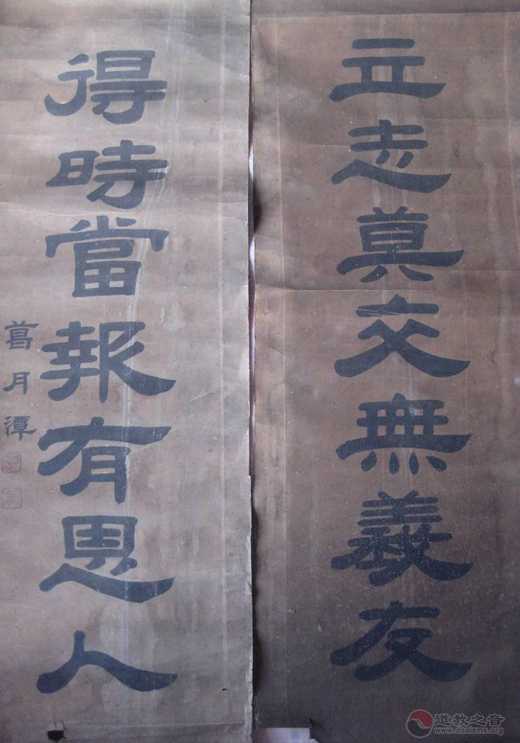 立志莫交無義友
得時當報有恩人
葛月潭
道教之音
www.daoisms.org